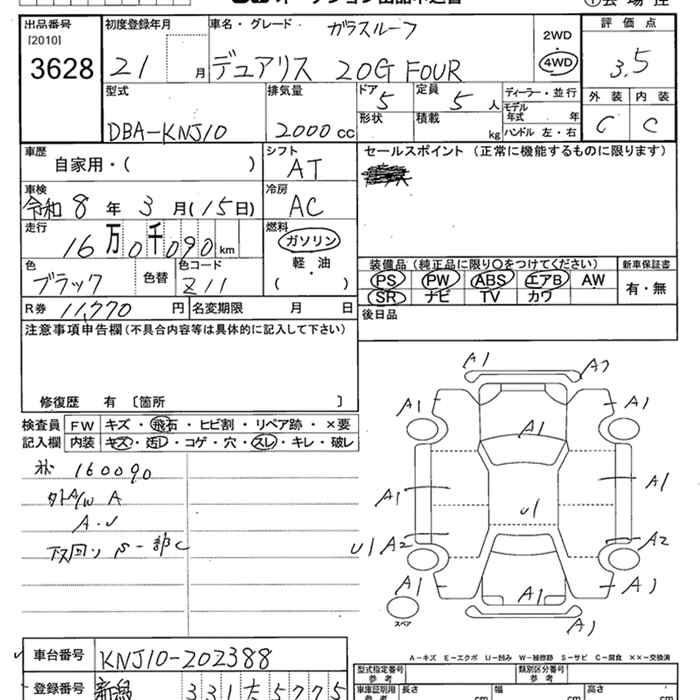 出品番号 初度登録年月 車名・グレード ガラスルーフ 2WD 評価点
[2010]
3628 21 月 デュアリス 20G FOUR 4WD 3.5
型式 排気量 ドア 5 定員 5 人 ディーラー・並行 外装 内装
DBA-KNJ10 2000 cc 形状 積載 kg モデル年式 年 C C
ハンドル 左・右
車歴 シフト セールスポイント (正常に機能するものに限ります)
自家用・( ) AT
車検 冷房
令和 8 年 3 月 (15日) AC
走行 燃料
16万0千090 km ガソリン
色 色替 色コード 軽・油 装備品 (純正品に限り○をつけてください) 新車保証書
ブラック Z11 ( ) PS PW ABS エアB AW 有・無
SR ナビ TV カワ
R券 11,770 円 名変期限 月 日 後日品
注意事項申告欄(不具合内容等は具体的に記入して下さい)
修復歴 有 [箇所 ]
検査員 FW キズ・飛石・ヒビ割・リペア跡・×要
記入欄 内装 キズ・汚レ・コゲ・穴・スレ・キレ・破レ
160090
外A/W A
A・U
下回り S-部C
A1 A2
A1 A1
A1
A1 A1
U1
U1 A2 A2
A1 A1
A1
スペア A1
A-キズ E-エクボ U-凹み W-補修跡 S-サビ C-腐食 ××-交換済
車台番号 KNJ10-202388
型式指定番号 参考 類別区分番号 参考
登録番号 331 5775
車庫証明用 参考 長さ cm 幅 cm 高さ cm